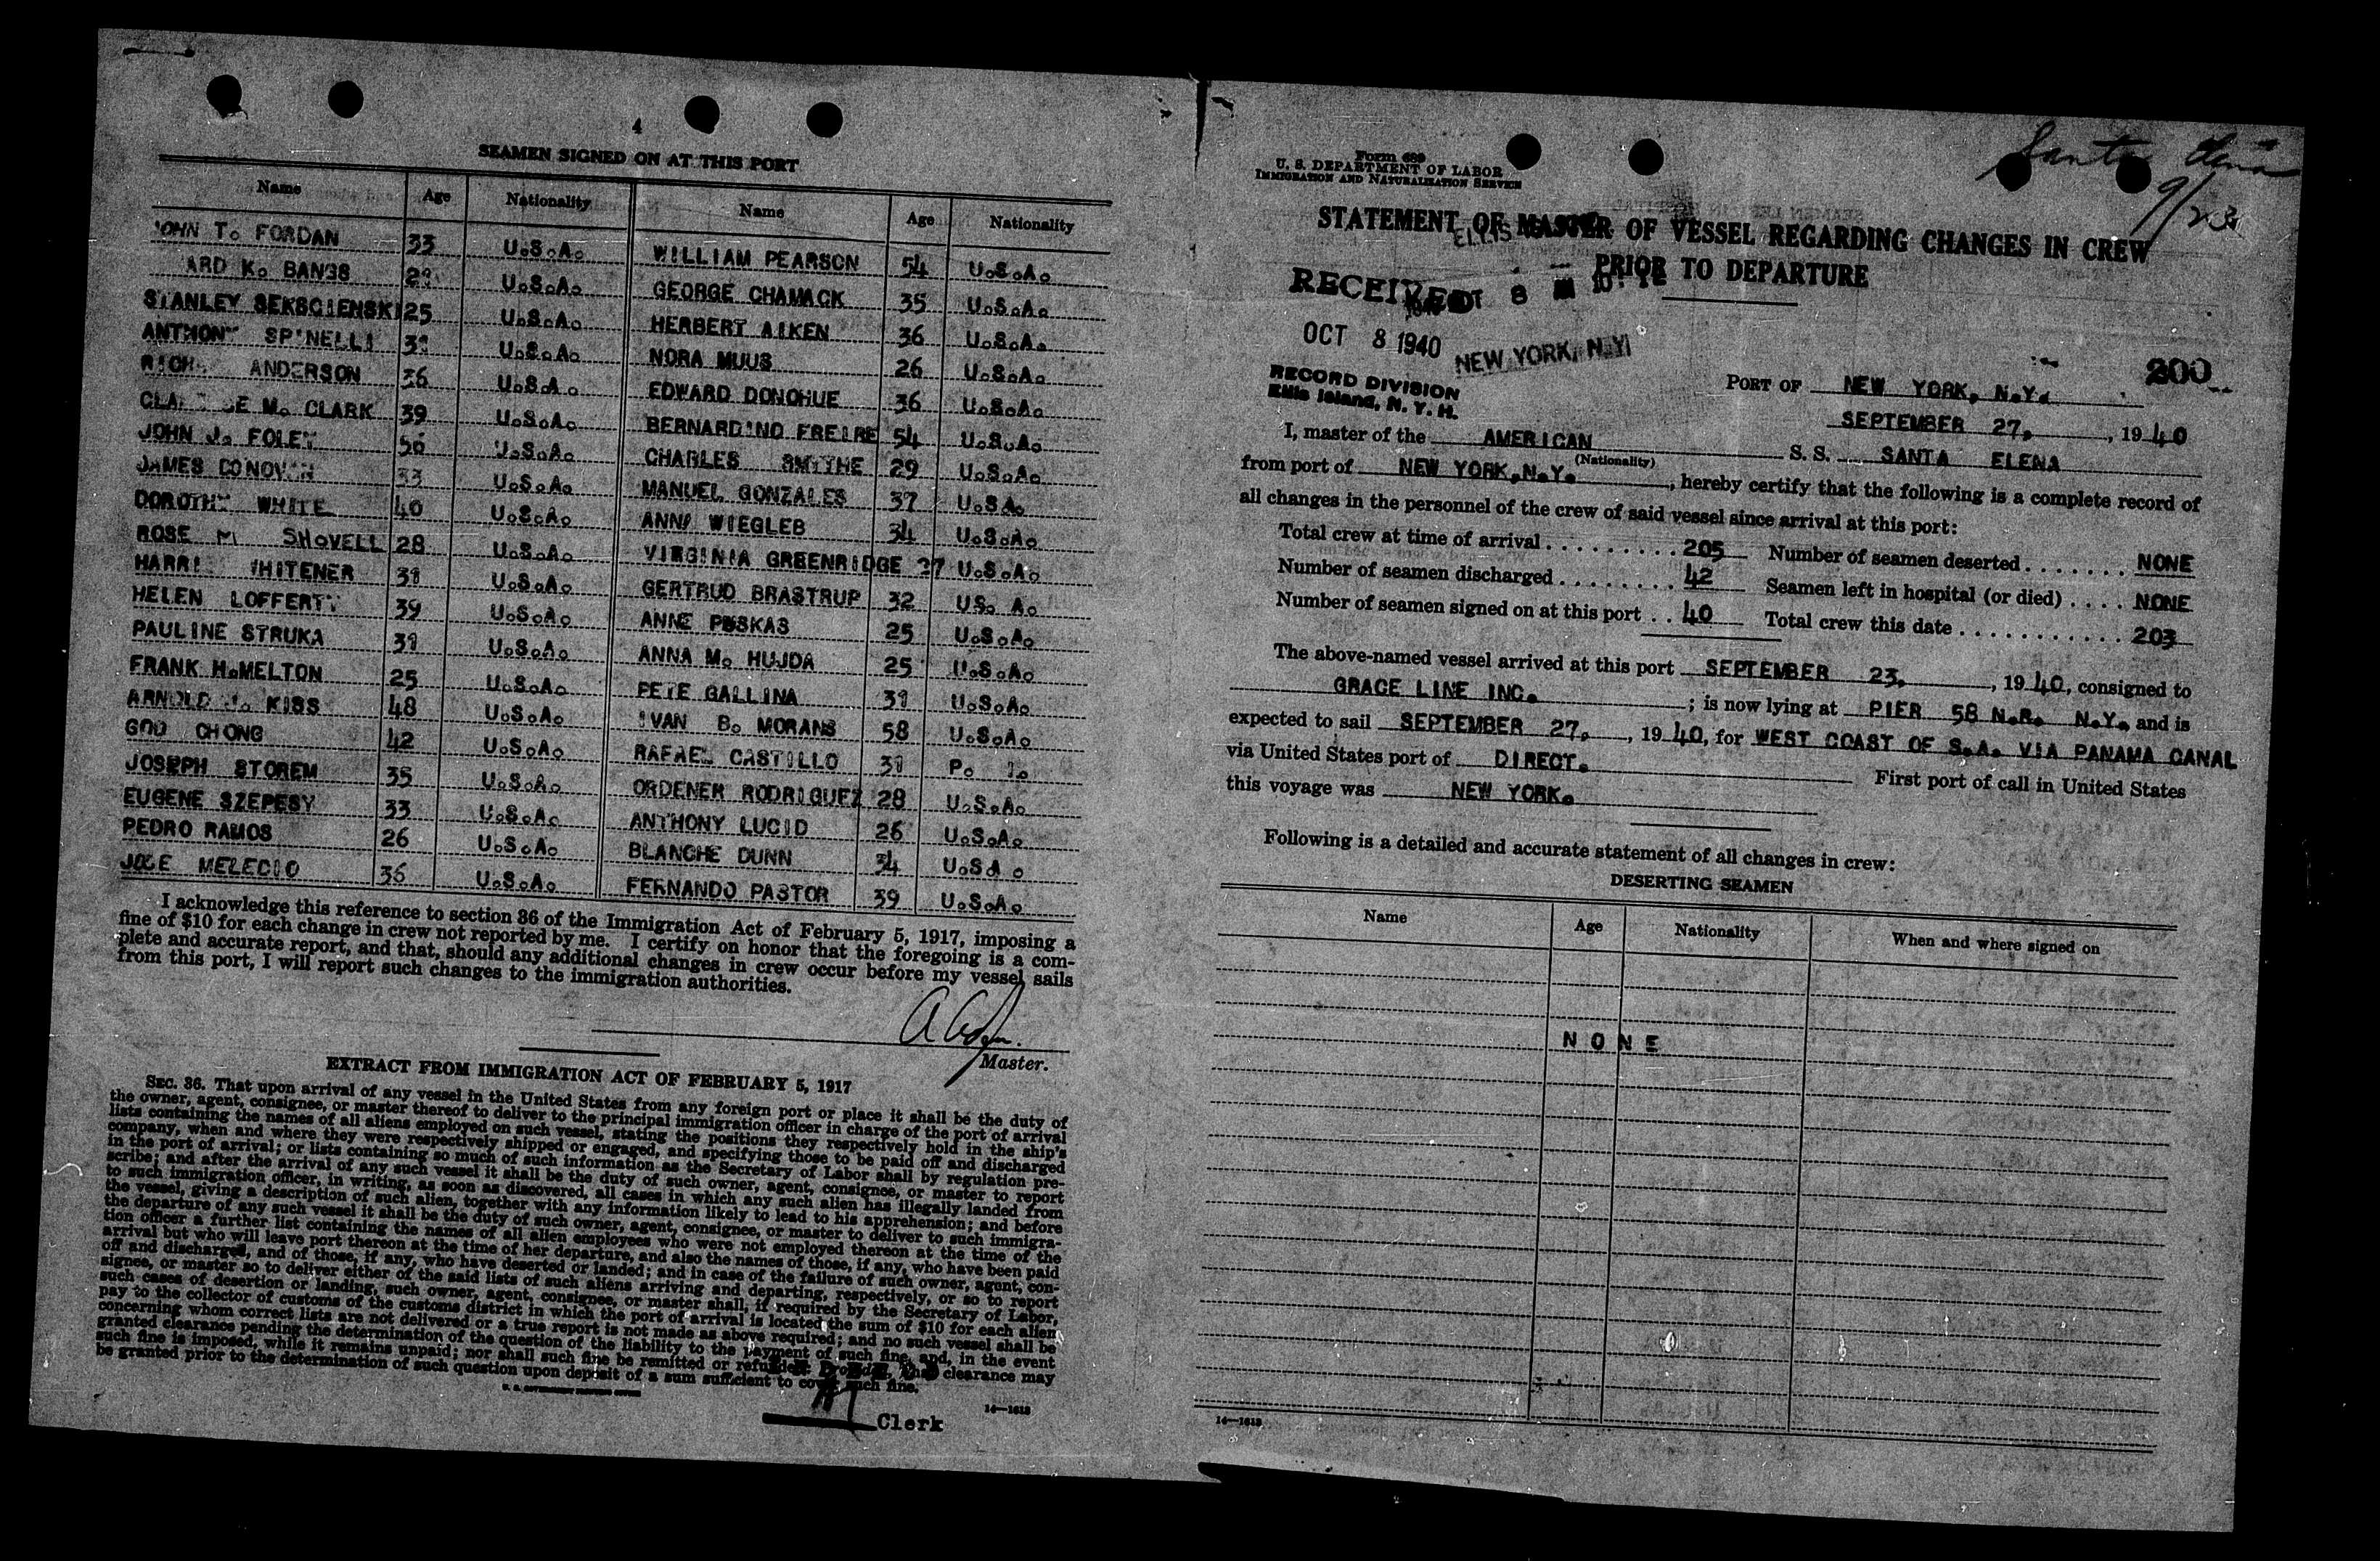 4
SEAMEN SIGNED ON AT THIS PORT
Name Age Nationality Name Age Nationality
JOHN T. FORDAN 33 U.S.A. WILLIAM PEARSON 54 U.S.A.
K. BANGS U.S.A. GEORGE CHAMACK 35 U.S.A.
STANLEY SEKSCIENSKI 25 U.S.A. HERBERT AIKEN 36 U.S.A.
ANTHONY SPINELLI U.S.A. NORA MUUS 26 U.S.A.
ANDERSON 36 U.S.A. EDWARD DONOHUE 36 U.S.A.
M. CLARK 39 U.S.A. BERNARDINO FREIRE 54 U.S.A.
JOHN J. FOLEY 56 U.S.A. CHARLES SMYTHE 29 U.S.A.
JAMES DONOVAN 33 U.S.A. MANUEL GONZALES 37 U.S.A.
DOROTHY WHITE 40 U.S.A. ANNA WIEGLEB 34 U.S.A.
ROSE M SHOVELL 28 U.S.A. VIRGINIA GREENRIDGE U.S.A.
WHITENER U.S.A. GERTRUD BRASTRUP 32 US. A.
HELEN LOFFERTY 39 U.S.A. ANNE PUSKAS 25 U.S.A.
PAULINE STRUKA U.S.A. ANNA M. HUJDA 25 U.S.A.
FRANK H.MELTON 25 U.S.A. PETE GALLINA U.S.A.
ARNOLD J. KISS 48 U.S.A. IVAN B. MORANS 58 U.S.A.
GOO CHONG 42 U.S.A. RAFAEL CASTILLO P.
JOSEPH STOREM 35 U.S.A. ORDENER RODRIGUEZ 28 U.S.A.
EUGENE SZEPESY 33 U.S.A. ANTHONY LUCID 26 U.S.A.
PEDRO RAMOS 26 U.S.A. BLANCHE DUNN 34 U.S.A.
JOSE MELECIO 36 U.S.A. FERNANDO PASTOR 39 U.S.A.
I acknowledge this reference to section 36 of the Immigration Act of February 5, 1917, imposing a
fine of $10 for each change in crew not reported by me. I certify on honor that the foregoing is a com-
plete and accurate report, and that, should any additional changes in crew occur before my vessel sails
from this port, I will report such changes to the immigration authorities.
Master.
EXTRACT FROM IMMIGRATION ACT OF FEBRUARY 5, 1917
SEC. 36. That upon arrival of any vessel in the United States from any foreign port or place it shall be the duty of
the owner, agent, consignee, or master thereof to deliver to the principal immigration officer in charge of the port of arrival
lists containing the names of all aliens employed on such vessel, stating the positions they respectively hold in the ship's
company, when and where they were respectively shipped or engaged, and specifying those to be paid off and discharged
in the port of arrival; or lists containing so much of such information as the Secretary of Labor shall by regulation pre-
scribe; and after the arrival of any such vessel it shall be the duty of such owner, agent, consignee, or master to report
to such immigration officer, in writing, as soon as discovered, all cases in which any such alien has illegally landed from
the vessel, giving a description of such alien, together with any information likely to lead to his apprehension; and before
the departure of any such vessel it shall be the duty of such owner, agent, consignee, or master to deliver to such immigra-
tion officer a further list containing the names of all alien employees who were not employed thereon at the time of the
arrival but who will leave port thereon at the time of her departure, and also the names of those, if any, who have been paid
off and discharged, and of those, if any, who have deserted or landed; and in case of the failure of such owner, agent, con-
signee, or master so to deliver either of the said lists of such aliens arriving and departing, respectively, or so to report
such cases of desertion or landing, such owner, agent, consignee, or master shall, if required by the Secretary of Labor,
pay to the collector of customs of the customs district in which the port of arrival is located the sum of $10 for each alien
concerning whom correct lists are not delivered or a true report is not made as above required; and no such vessel shall be
granted clearance pending the determination of the question of the liability to the payment of such fine, and, in the event
such fine is imposed, while it remains unpaid; nor shall such fine be remitted or refunded: Provided, That clearance may
be granted prior to the determination of such question upon deposit of a sum sufficient to cover such fine.
U. S. GOVERNMENT PRINTING OFFICE
14—1618
Clerk
Santa Elena
9/23
Form 689
U. S. DEPARTMENT OF LABOR
IMMIGRATION AND NATURALIZATION SERVICE
STATEMENT OF MASTER OF VESSEL REGARDING CHANGES IN CREW
PRIOR TO DEPARTURE
ELLIS
RECEIVED
OCT 8 1940
NEW YORK, N.Y.
RECORD DIVISION
Ellis Island, N. Y. H.
200
PORT OF NEW YORK, N.Y.
SEPTEMBER 27, , 1940
I, master of the AMERICAN S. S. SANTA ELENA
(Nationality)
from port of NEW YORK,N.Y. , hereby certify that the following is a complete record of
all changes in the personnel of the crew of said vessel since arrival at this port:
Total crew at time of arrival . . . . . . . . . 205 Number of seamen deserted . . . . . . . NONE
Number of seamen discharged . . . . . . . . 42 Seamen left in hospital (or died) . . . . NONE
Number of seamen signed on at this port . . 40 Total crew this date . . . . . . . . . . . . 203
The above-named vessel arrived at this port SEPTEMBER 23, , 1940, consigned to
GRACE LINE INC. ; is now lying at PIER 58 N.R. N.Y. and is
expected to sail SEPTEMBER 27, , 1940, for WEST COAST OF S.A. VIA PANAMA CANAL
via United States port of DIRECT. First port of call in United States
this voyage was NEW YORK.
Following is a detailed and accurate statement of all changes in crew:
DESERTING SEAMEN
Name Age Nationality When and where signed on
NONE
14—1618